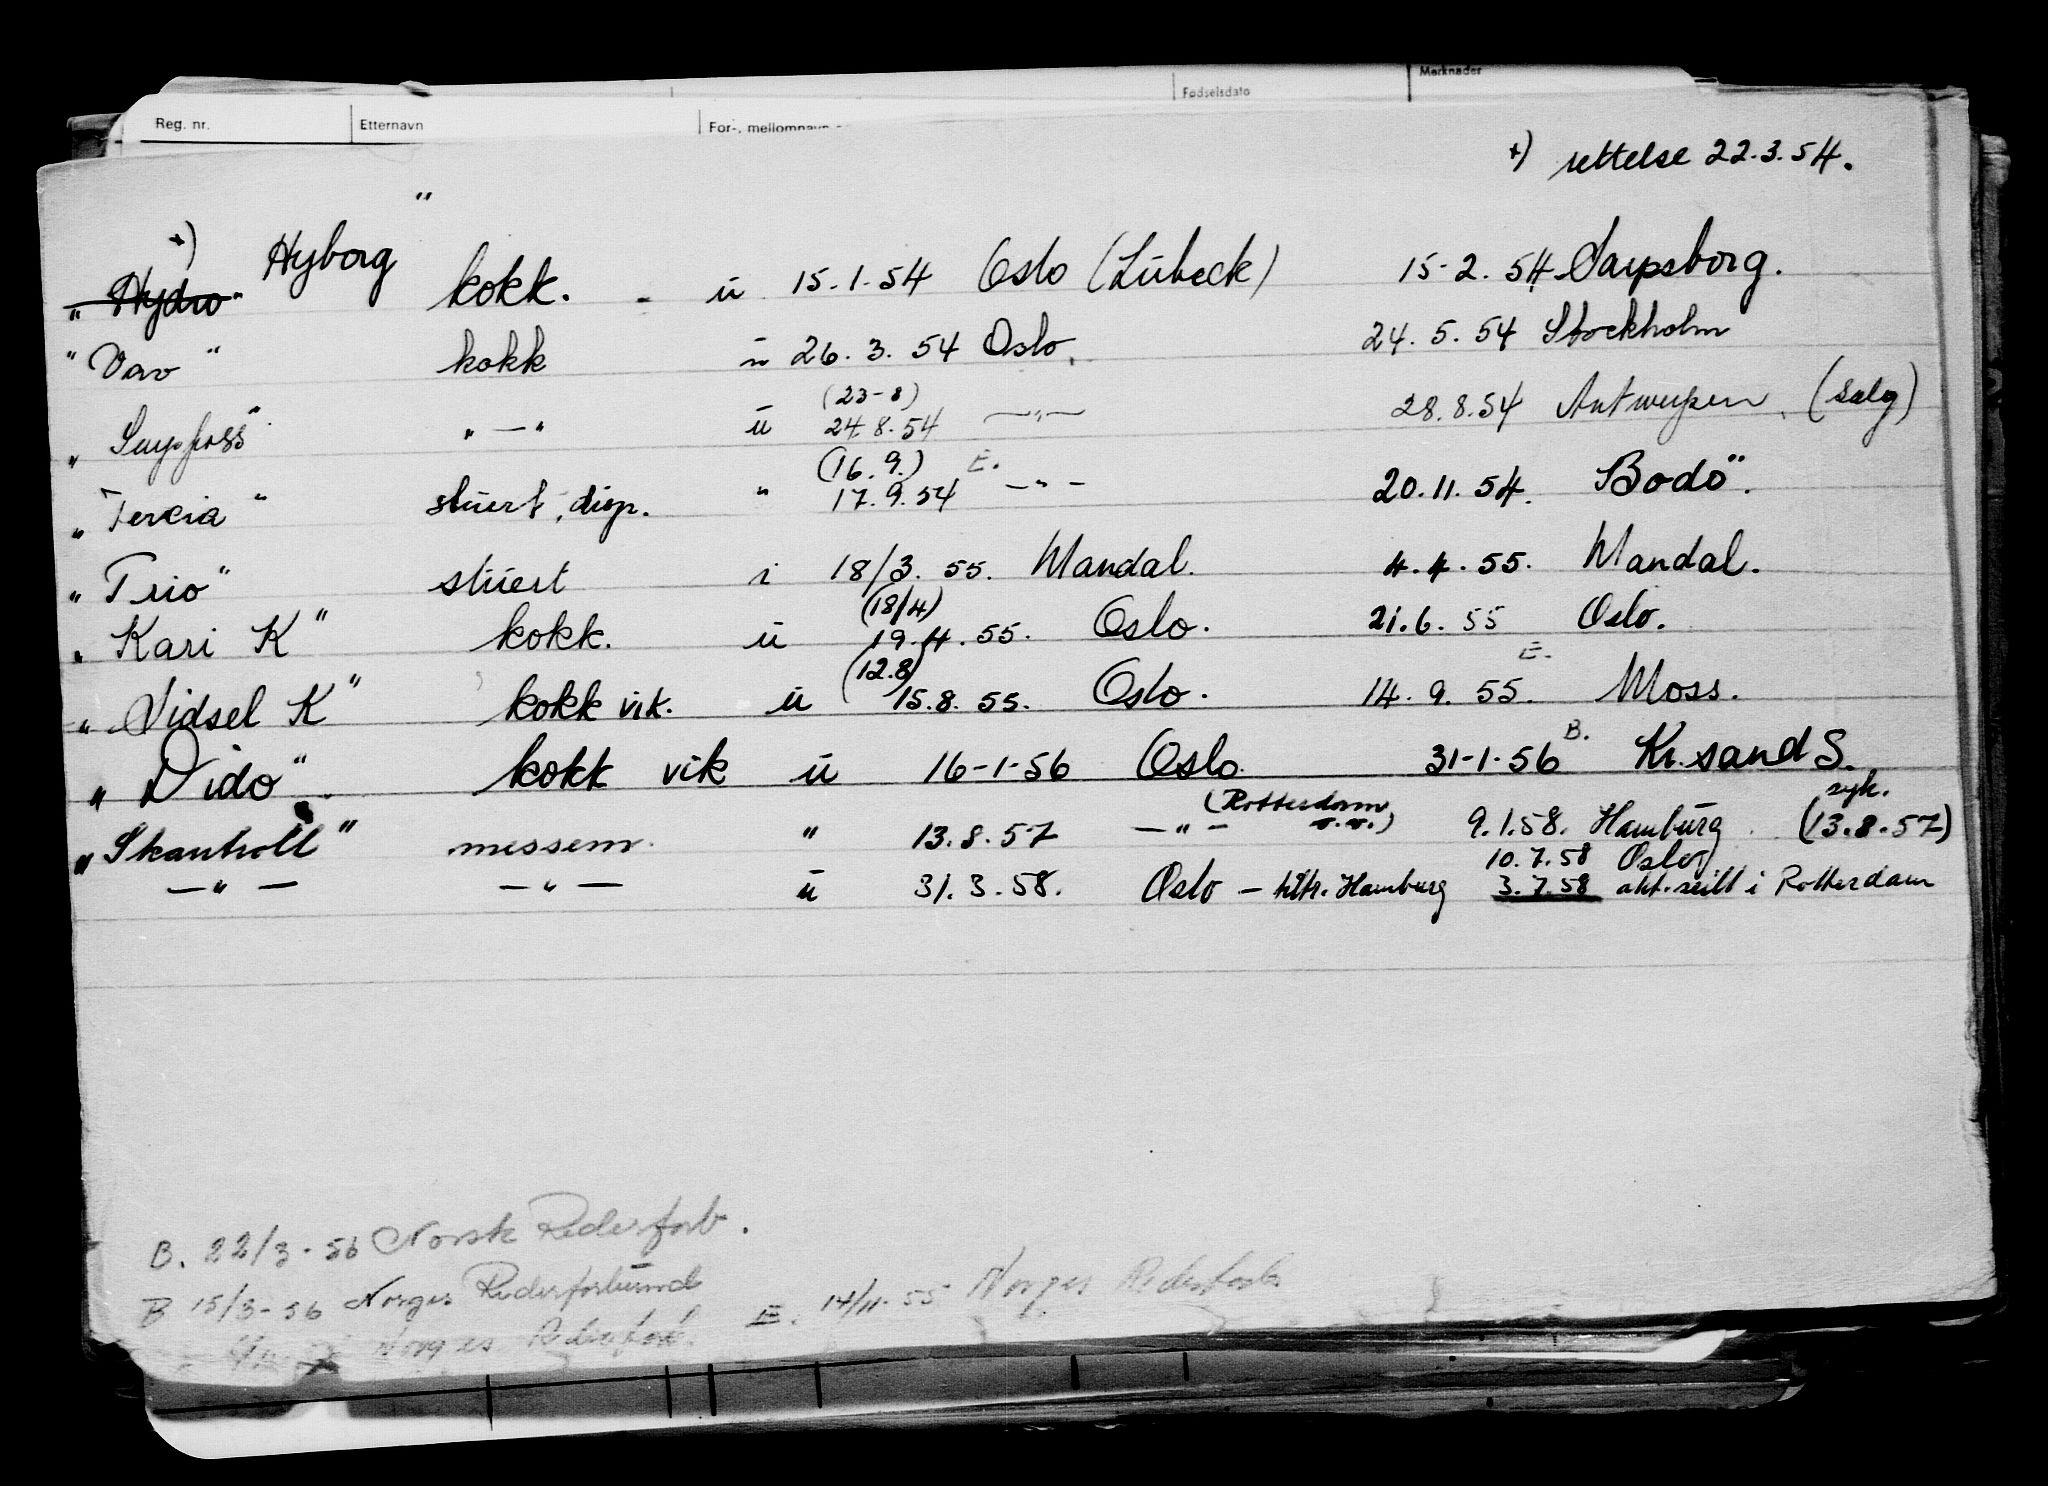 Merknader
Fødselsdato
Reg. nr. Etternavn For-, mellomnavn
*) rettelse 22.3.54.
"
*) Hyborg
"Hydro" kokk. - ü 15.1.54 Oslo (Lübeck) 15-2.54 Sarpsborg.
"Vav" kokk ü 26.3.54 Oslo. 24.5.54 Stockholm
(23-8)
"Sarpfoss" "—" ü 24.8.54 —"— 28.8.54 Antwerpen. (salg)
(16.9.) E.
"Tercia" stüert, disp. " 17.9.54 —"— 20.11.54. Bodö".
"Trio" stüert i 18/3.55. Mandal. 4.4.55. Mandal.
(18/4)
"Kari K" kokk. ü 19.4.55. Oslo. 21.6.55 Oslo.
(12.8) E.
"Vidsel K" kokk vik. ü 15.8.55. Oslo. 14.9.55. Moss.
"Dido" kokk vik ü 16-1-56 Oslo. 31-1-56 B. Kr.sand S.
(Rotterdam v.v.) syk.
"Skantroll" messem. " 13.8.57 —"— 9.1.58. Hambürg. (13.8.57)
10.7.58 Oslo
—"— —"— ü 31.3.58. Oslo — tiltr. Hamburg 3.7.58 i Rotterdam
B. 22/3-56 Norsk Rederforb.
B 15/3-56 Norges Rederforbünd
E. 14/11-55 Norges Rederforb
Norges Rederforb.